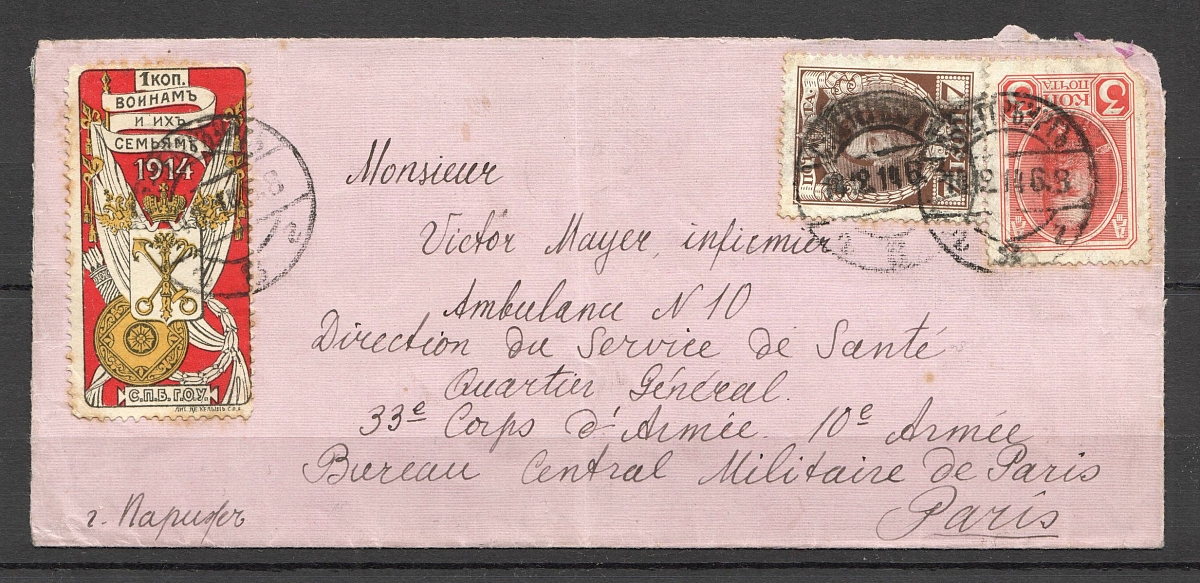 1 КОП.
ВОИНАМЪ
И ИХЪ
СЕМЬЯМЪ
1914
С.П.Б.Г.О.У.
7
КОП
3
КОП
ПОЧТА
12 14 6
12 14 6.8
Monsieur
Victor Mayer, infirmier
Ambulance N 10
Direction du Service de Santé
Quartier Général.
33e Corps d'Armée. 10e Armée
Bureau Central Militaire de Paris
Paris
г. Парижъ